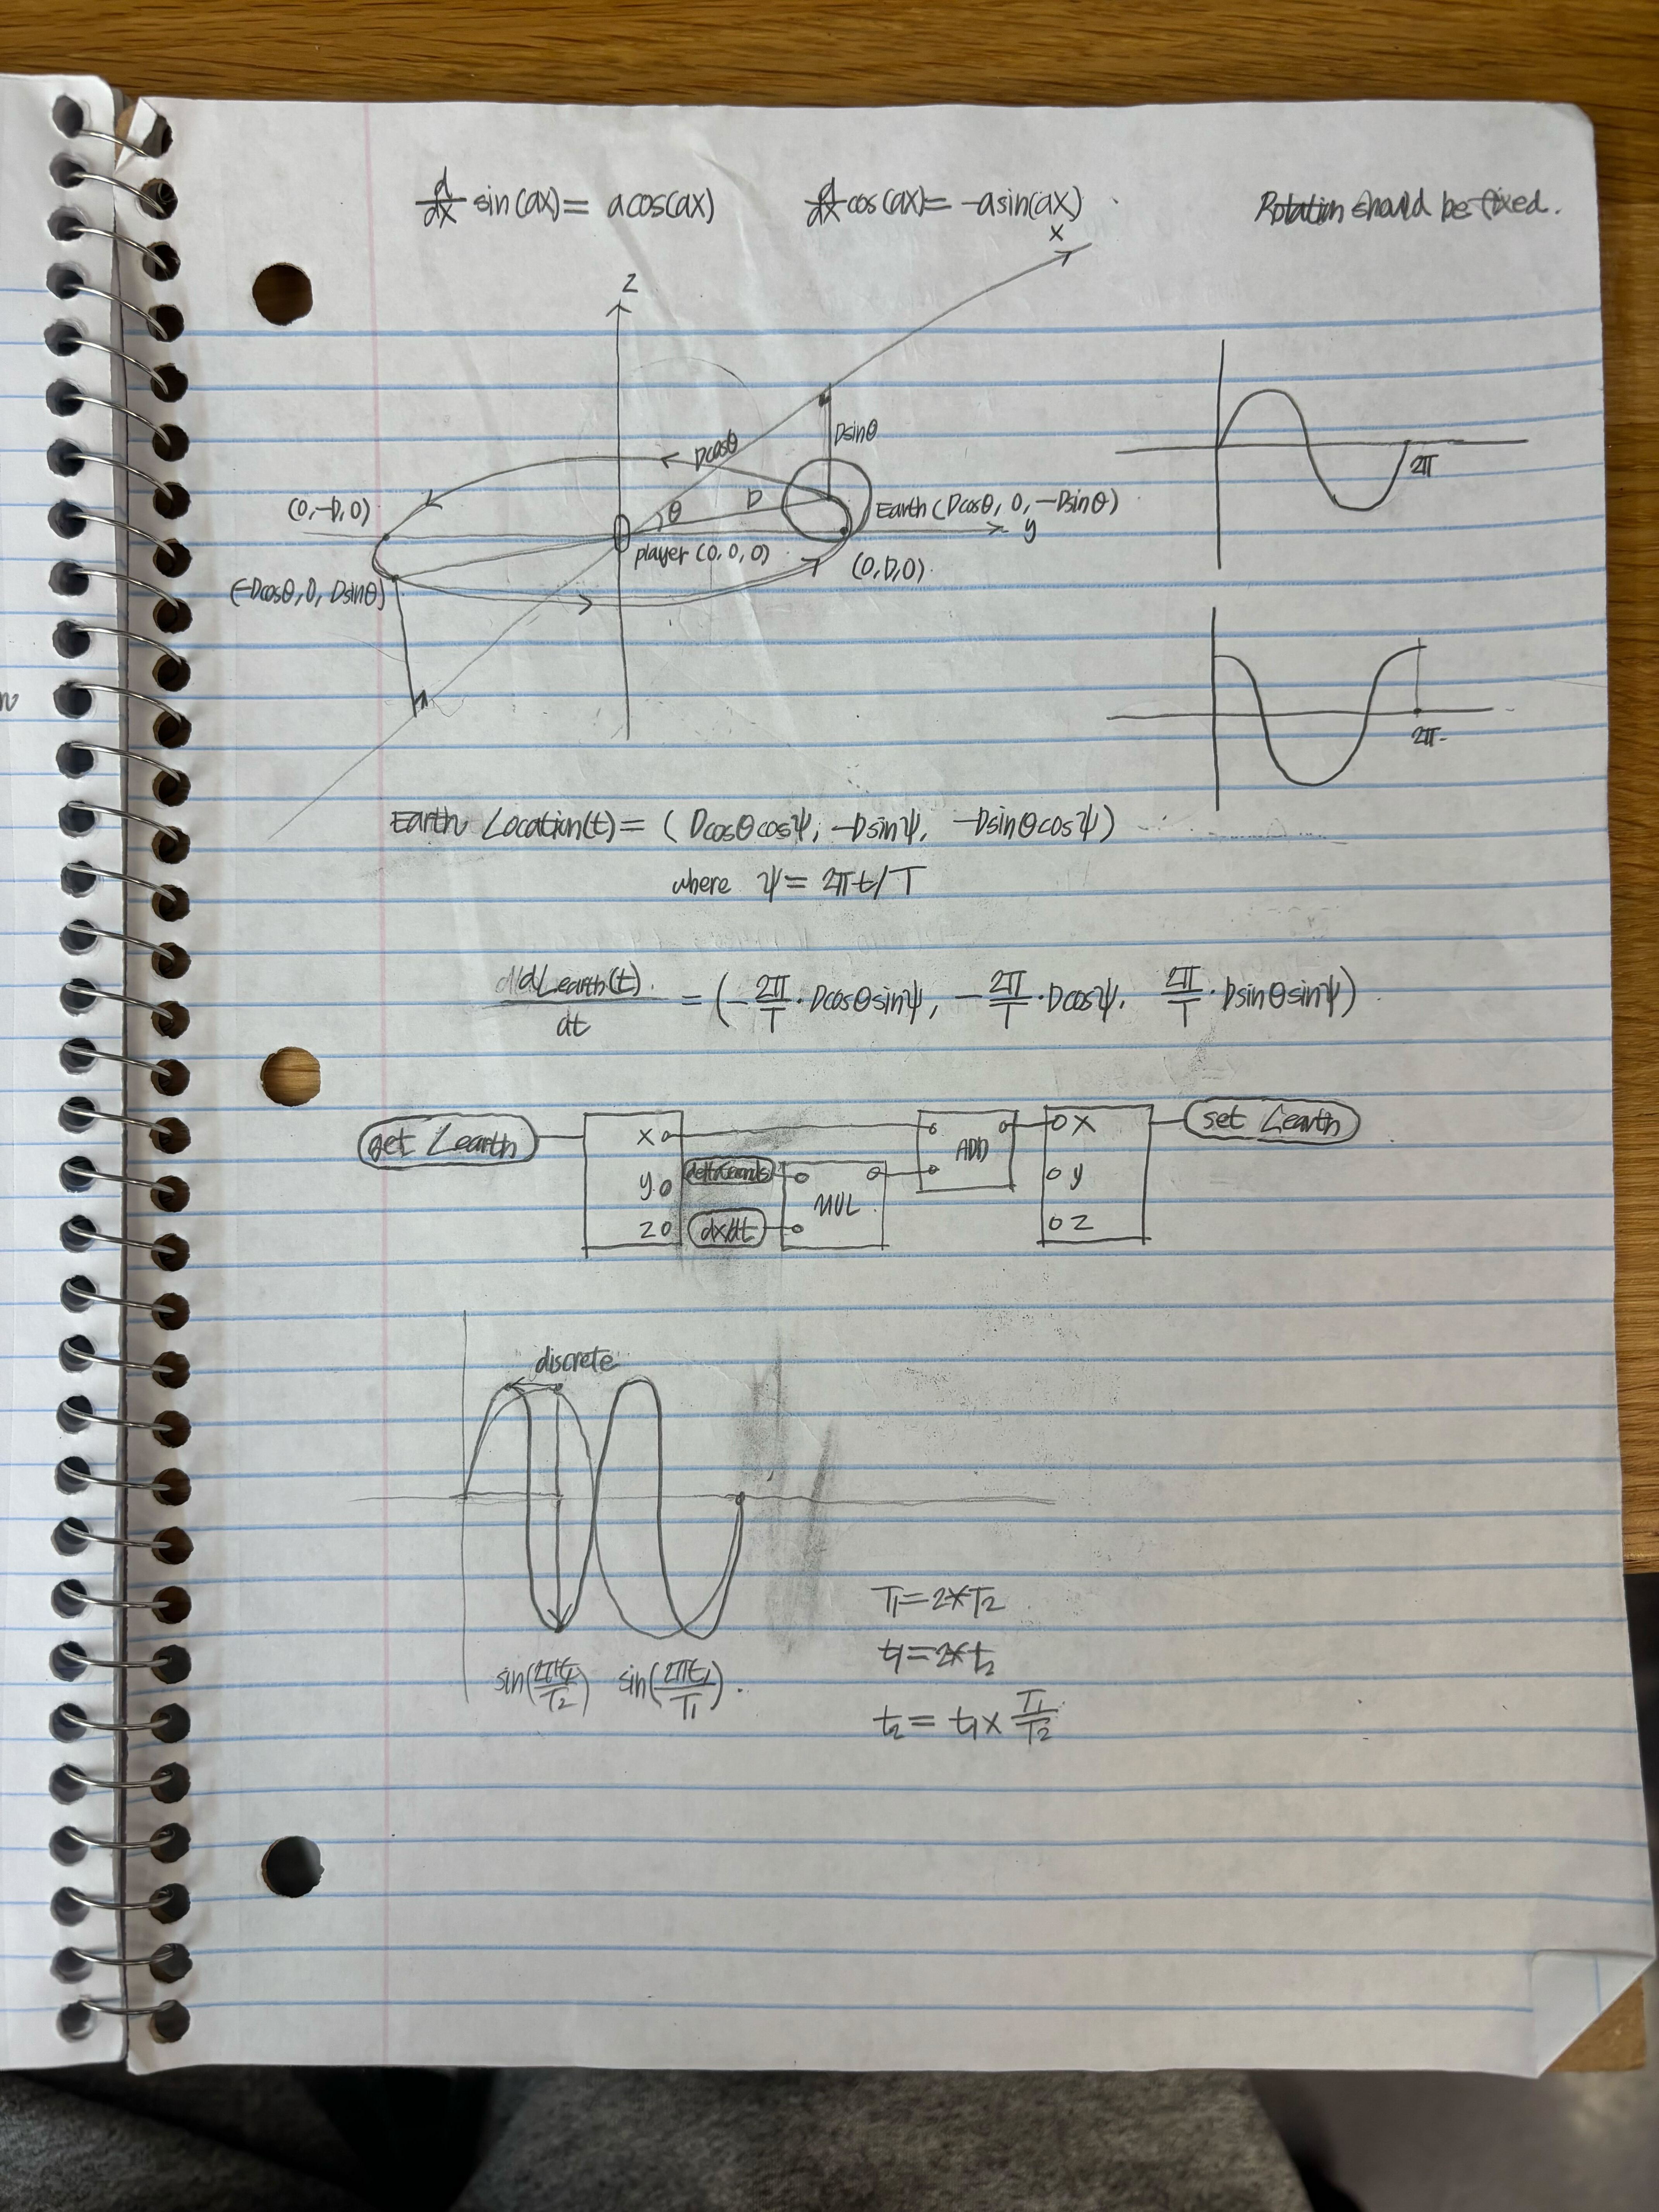 d/dx sin(ax) = a cos(ax)    d/dx cos(ax) = -a sin(ax)    Rotation should be fixed.
x
z
Dsinθ
Dcosθ
2π
(0, -D, 0)
θ
D
Earth (Dcosθ, 0, -Dsinθ)
y
player (0, 0, 0)
(0, D, 0)
(-Dcosθ, 0, Dsinθ)
2π
Earth Location(t) = (Dcosθcosψ, -Dsinψ, -Dsinθcosψ)
where ψ = 2πt/T
dLearth(t)/dt = (-2π/T · Dcosθsinψ, -2π/T · Dcosψ, 2π/T · Dsinθsinψ)
get Learth
x
y
z
deltaSeconds
dx/dt
MUL
ADD
x
y
z
set Learth
discrete
T1 = 2*T2
t1 = 2*t2
sin(2πt1/T2)    sin(2πt1/T1)
t2 = t1 × T1/T2